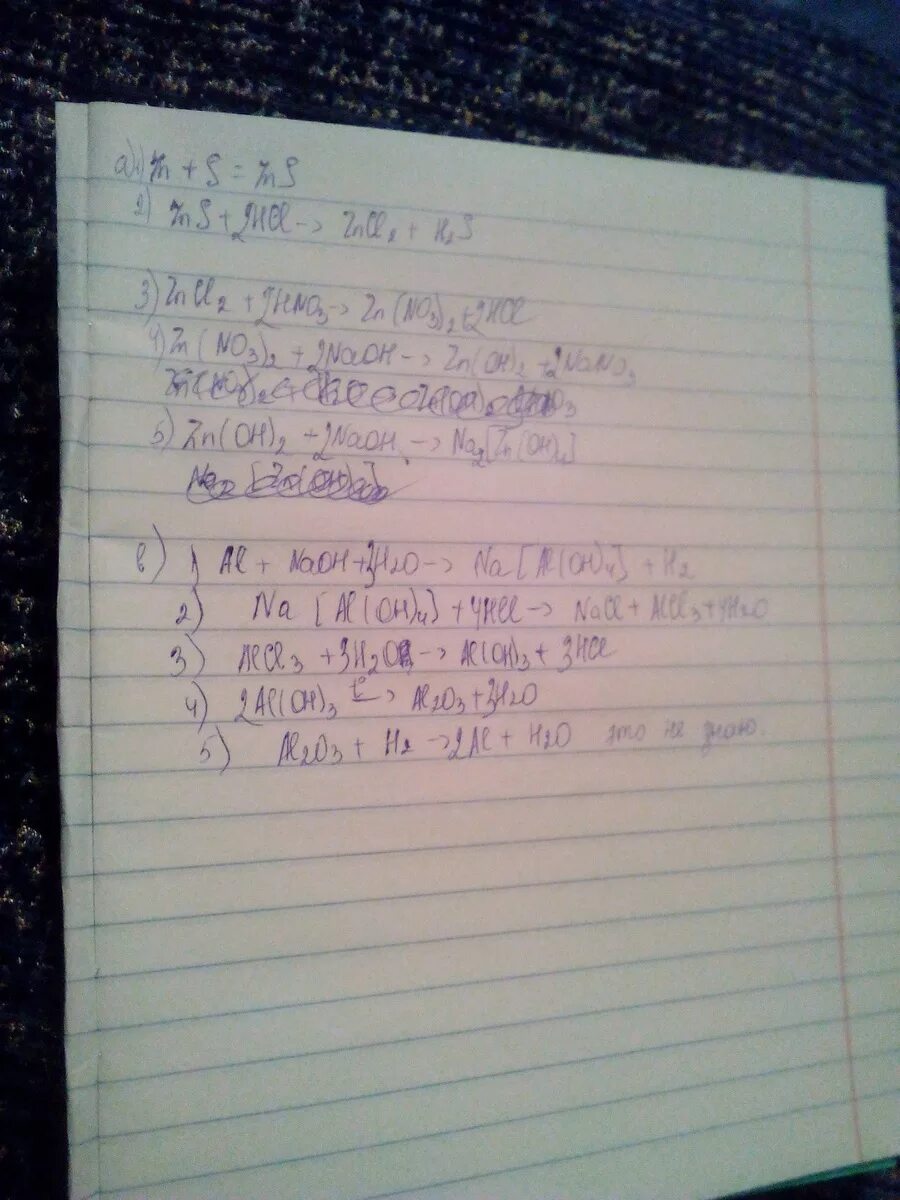 а) 1) Zn + S = ZnS
2) ZnS + 2HCl → ZnCl2 + H2S
3) ZnCl2 + 2HNO3 → Zn(NO3)2 + 2HCl
4) Zn(NO3)2 + 2NaOH → Zn(OH)2 + 2NaNO3
5) Zn(OH)2 + 2NaOH → Na2[Zn(OH)4]
Na2[Zn(OH)4]
в) 1) Al + NaOH + 3H2O → Na[Al(OH)4] + H2
2) Na[Al(OH)4] + 4HCl → NaCl + AlCl3 + 4H2O
3) AlCl3 + 3H2O → Al(OH)3 + 3HCl
4) 2Al(OH)3 t°→ Al2O3 + 3H2O
5) Al2O3 + H2 → 2Al + H2O это не знаю.